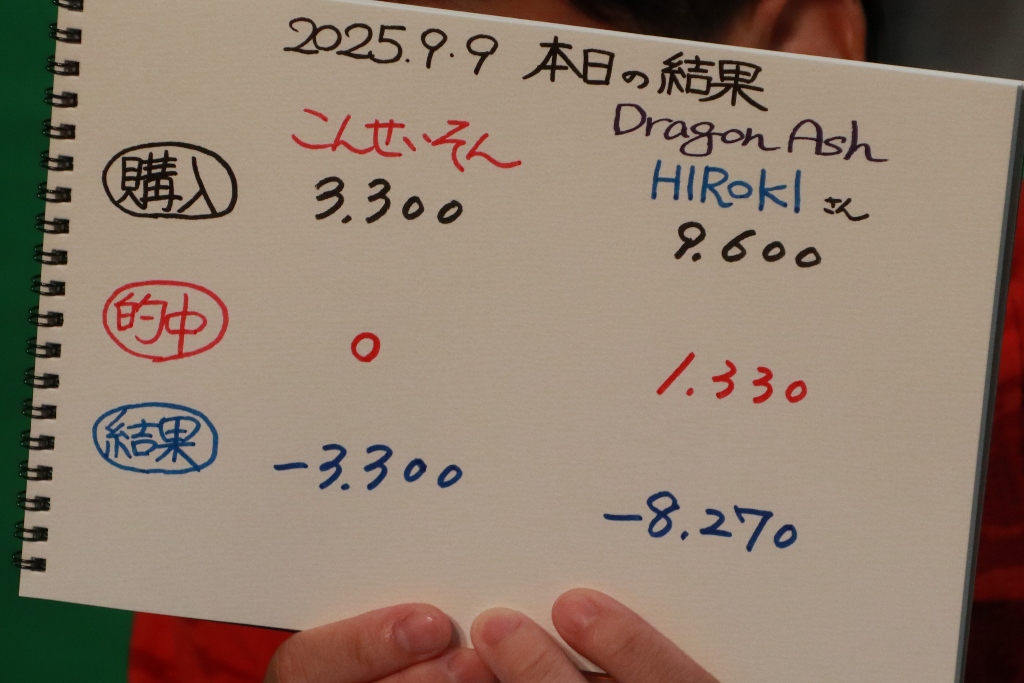 2025.9.9 本日の結果
こんせいそん Dragon Ash
HIROKI さん
購入 3.300 9.600
的中 0 1.330
結果 -3.300 -8.270